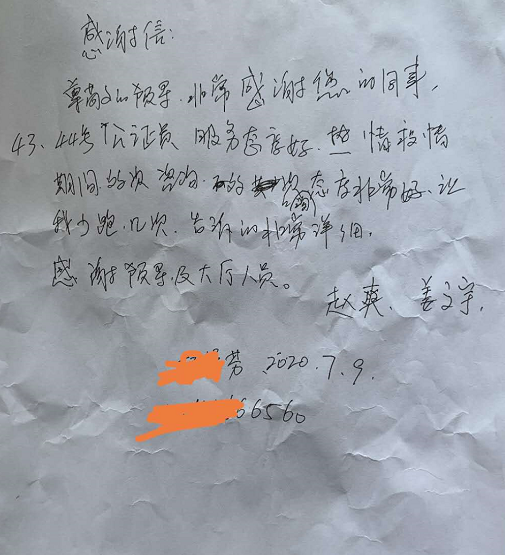 感谢信:
尊敬的领导.非常感谢您的同事,
43、44号公证员 服务态度好.热情疫情
期间的次咨询.的次态度非常好.让
我少跑几次.告诉的非常详细.
感谢领导及大厅人员。
赵爽、姜文宇.
芳 2020.7.9.
66560